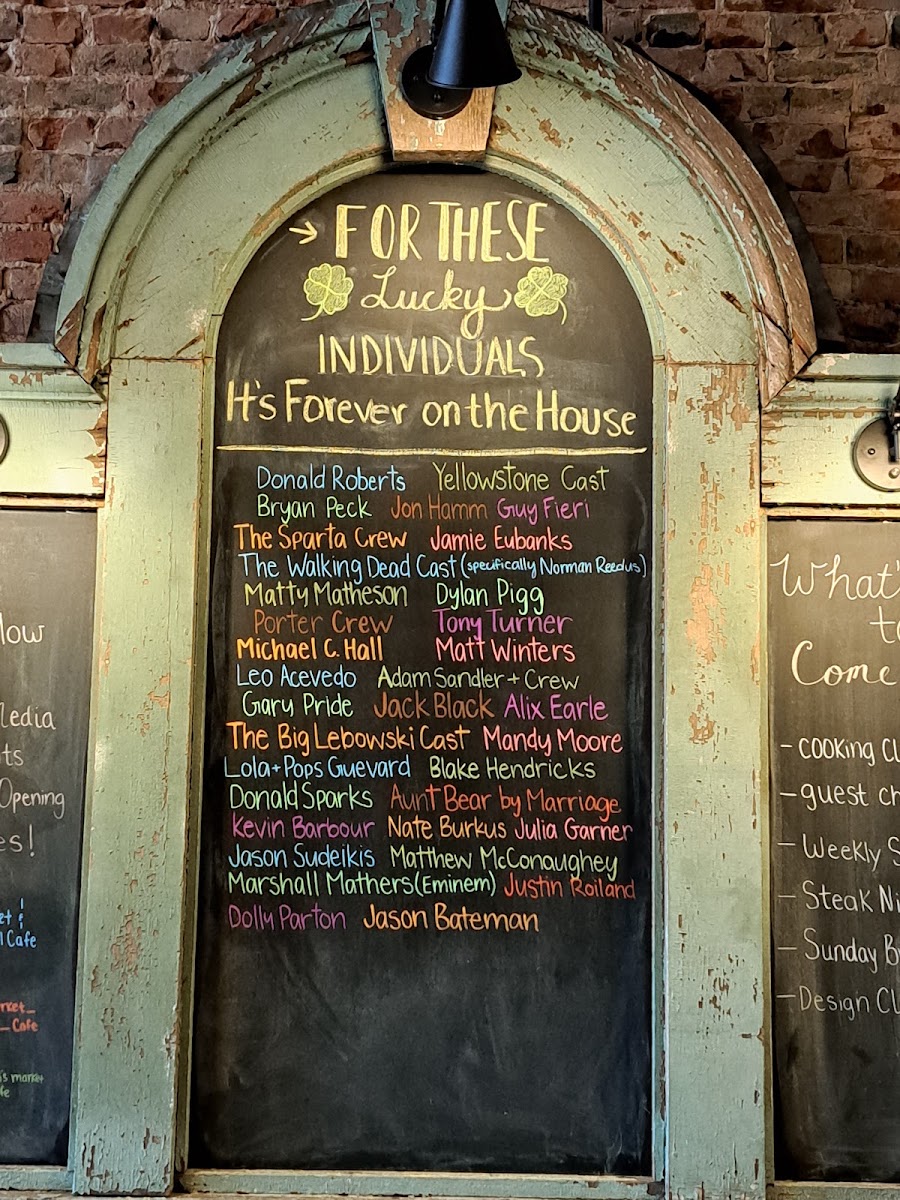 → FOR THESE
Lucky
INDIVIDUALS
It's Forever on the House
Donald Roberts Yellowstone Cast
Bryan Peck Jon Hamm Guy Fieri
The Sparta Crew Jamie Eubanks
The Walking Dead Cast (specifically Norman Reedus)
Matty Matheson Dylan Pigg
Porter Crew Tony Turner
Michael C. Hall Matt Winters
Leo Acevedo Adam Sandler + Crew
Gary Pride Jack Black Alix Earle
The Big Lebowski Cast Mandy Moore
Lola + Pops Guevard Blake Hendricks
Donald Sparks Aunt Bear by Marriage
Kevin Barbour Nate Burkus Julia Garner
Jason Sudeikis Matthew McConaughey
Marshall Mathers (Eminem) Justin Roiland
Dolly Parton Jason Bateman
Opening
Cafe
Cafe
market
What'
Come
- COOKING
- guest
- Weekly
- Steak
- Sunday
- Design